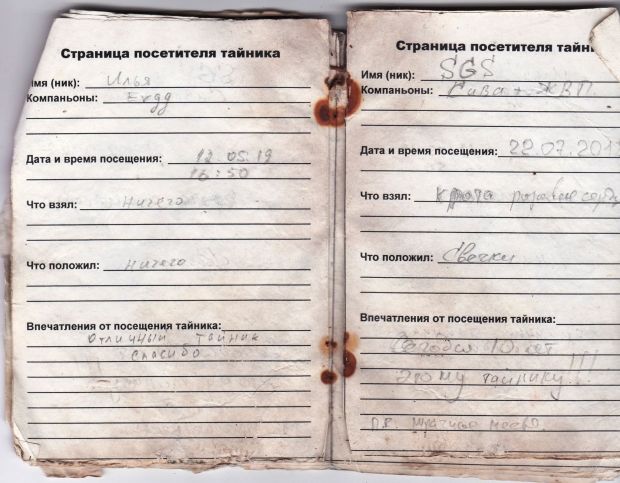 Страница посетителя тайника
Имя (ник): Илья
Компаньоны:
Дата и время посещения: 12.05.19
16:50
Что взял: Ничего
Что положил: ничего
Впечатления от посещения тайника:
Отличный тайник
спасибо
Страница посетителя тайн
Имя (ник): SGS
Компаньоны: Сива + ЖВП
Дата и время посещения: 22.07.201
Что взял: розовые
Что положил: Свечки
Впечатления от посещения тайника:
Сегодня 10 лет
этому тайнику...!!!
P.S. Мрачное место.